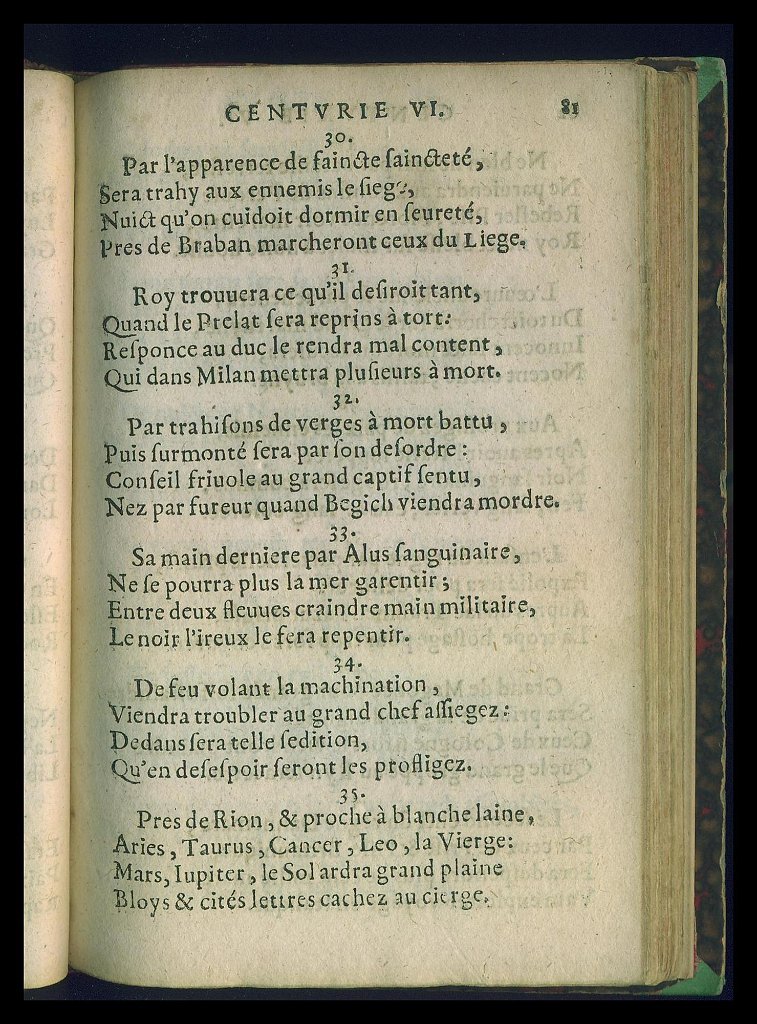 CENTVRIE VI. 81
30.
Par l'apparence de faincte ſaincteté,
Sera trahy aux ennemis le ſiege,
Nuict qu'on cuidoit dormir en ſeureté,
Pres de Braban marcheront ceux du Liege.
31.
Roy trouuera ce qu'il deſiroit tant,
Quand le Prelat ſera reprins à tort:
Reſponce au duc le rendra mal content,
Qui dans Milan mettra pluſieurs à mort.
32.
Par trahiſons de verges à mort battu,
Puis ſurmonté ſera par ſon deſordre:
Conſeil friuole au grand captif ſentu,
Nez par fureur quand Begich viendra mordre.
33.
Sa main derniere par Alus ſanguinaire,
Ne ſe pourra plus la mer garentir;
Entre deux fleuues craindre main militaire,
Le noir l'ireux le fera repentir.
34.
De feu volant la machination,
Viendra troubler au grand chef aſſiegez:
Dedans ſera telle ſedition,
Qu'en deſeſpoir ſeront les profligez.
35.
Pres de Rion, & proche à blanche laine,
Aries, Taurus, Cancer, Leo, la Vierge:
Mars, Iupiter, le Sol ardra grand plaine
Bloys & cités lettres cachez au cierge.